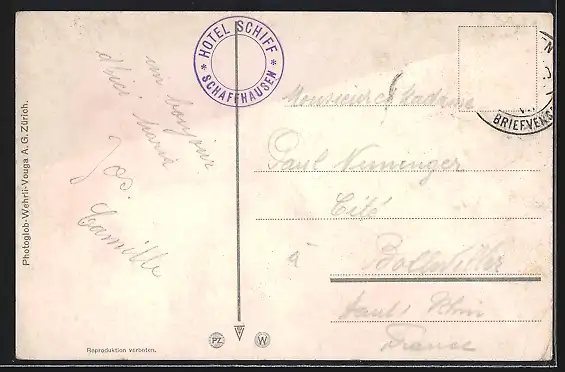 HOTEL SCHIFF
* SCHAFFHAUSEN *
BRIEFVERS
un bonjour
d'ici Maria
Jos.
Camille
Monsieur et Madame
Paul Nuninger
Cité
à Bollwiller
Haut Rhin
France
Photoglob-Wehrli-Vouga A. G. Zürich.
Reproduktion verboten.
PZ W